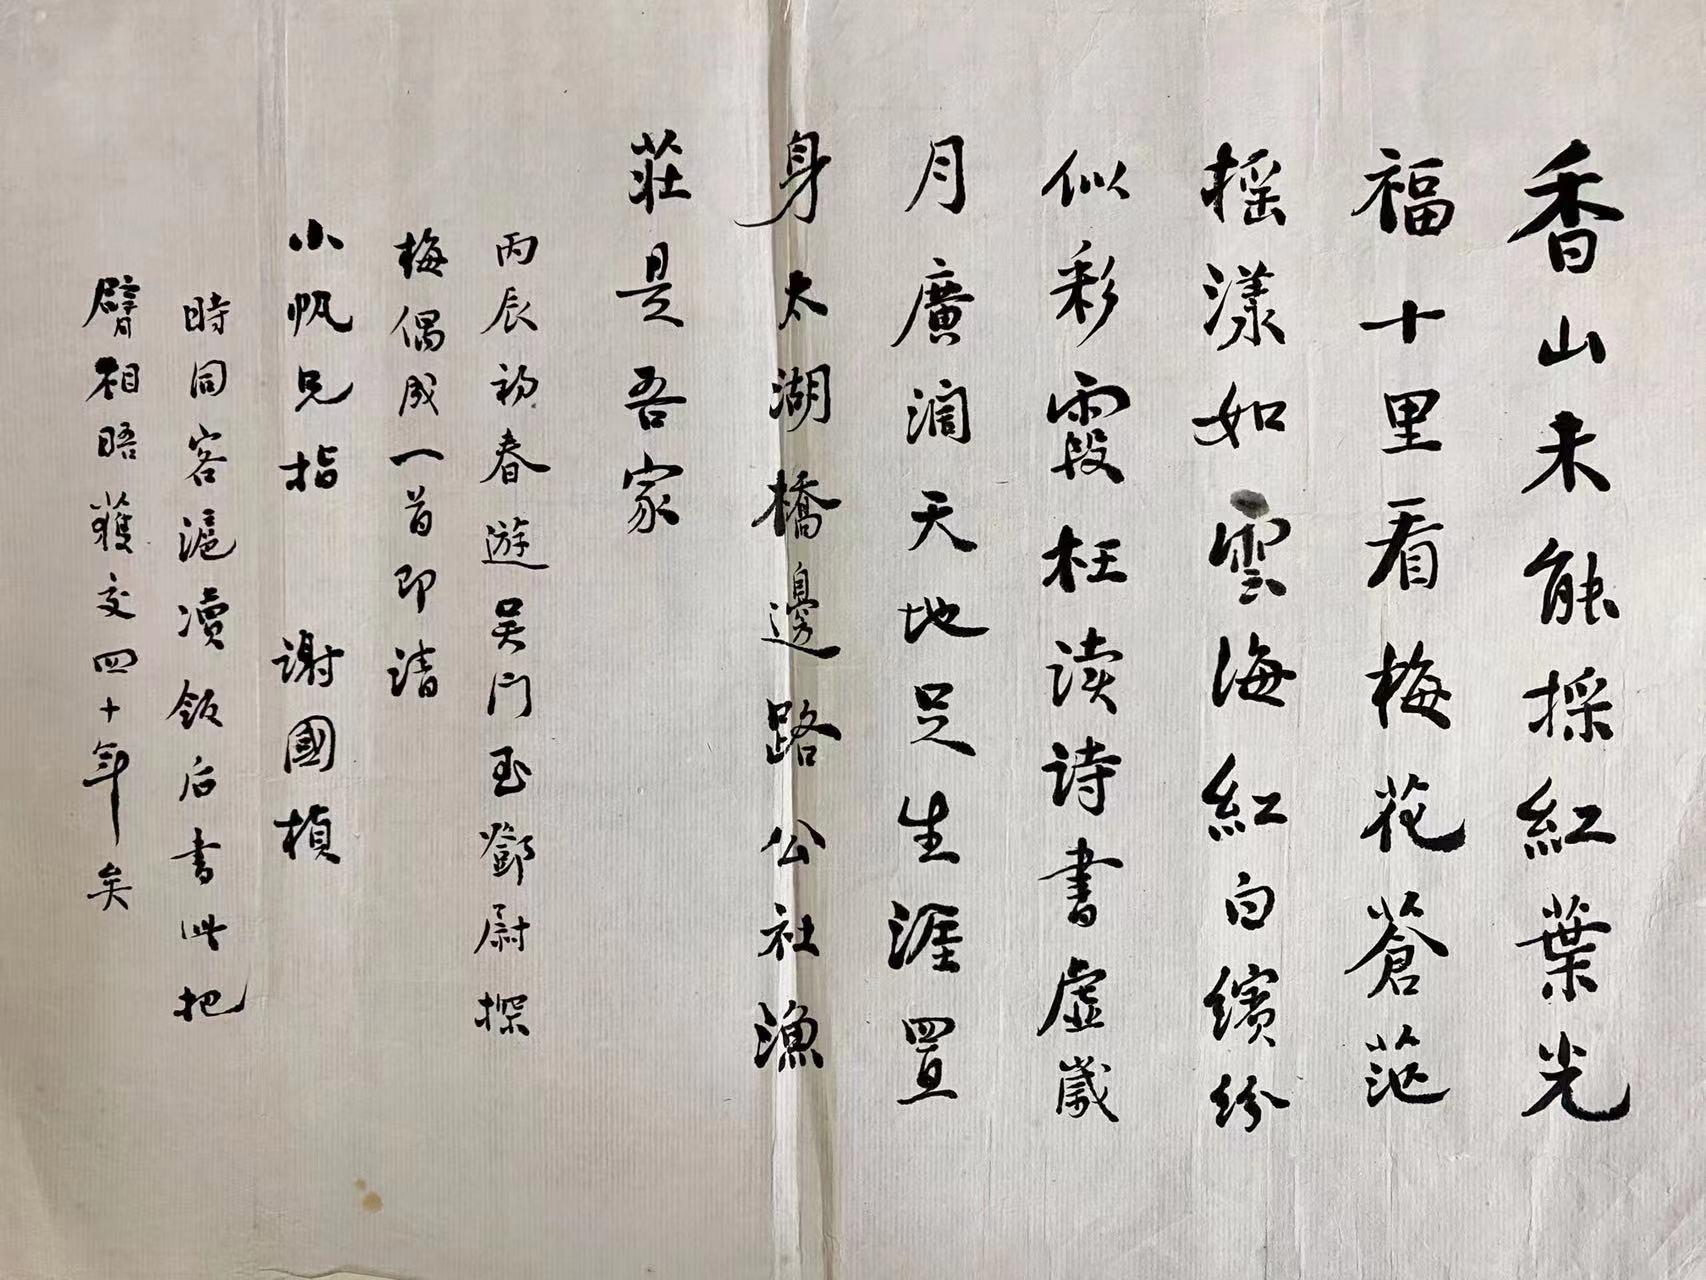 香山未能採紅葉光
福十里看梅花蒼茫
摇漾如雲海紅白繽紛
似彩霞枉读诗書虚歲
月廣濶天地足生涯置
身太湖橋邊路公社漁
莊是吾家
丙辰初春遊吴门玉鄧尉探
梅偶成一首即請
小帆兄指 谢國楨
時同客滬瀆飯后書此把
臂相晤獲交四十年矣